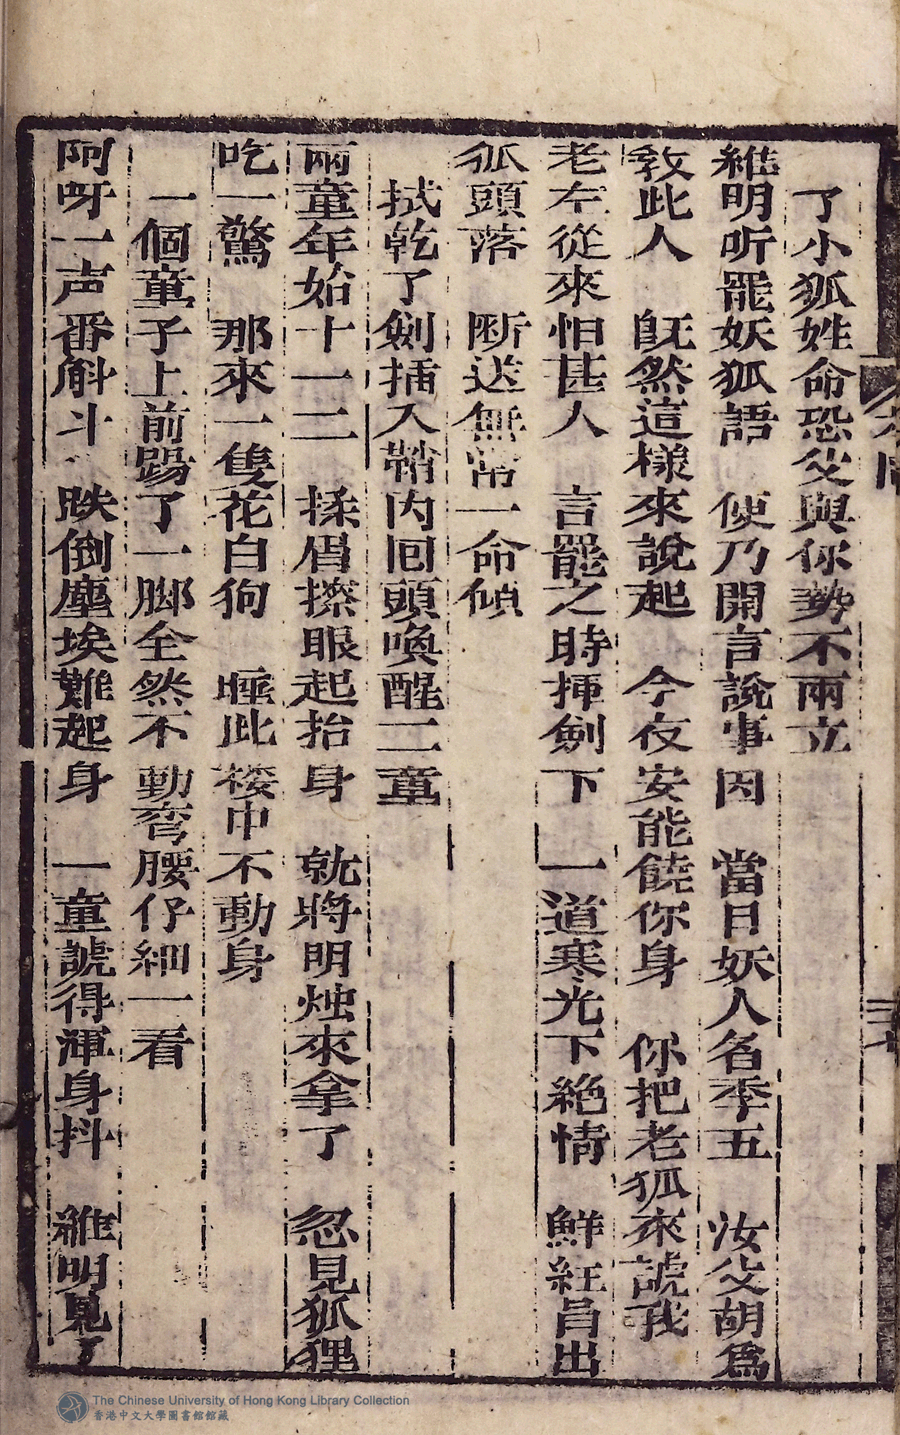 了小狐姓命恐父與你勢不兩立
維明听罷妖狐語　便乃開言說事因　當日妖人名季五　汝父胡為
敎此人　旣然這樣來說起　今夜安能饒你身　你把老狐來諕我
老左從來怕甚人　言罷之時揮劍下　一道寒光下絕情　鮮紅冐出
狐頭落　断送無常一命傾
拭乾了劍插入鞘內囘頭喚醒二童
兩童年始十一二　揉眉擦眼起抬身　就將明烛來拿了　忽見狐狸
吃一驚　那來一隻花白狗　睡此楼中不動身
一個童子上前踢了一脚全然不動弯腰仔細一看
阿呀一声番斛斗　跌倒塵埃難起身　一童諕得渾身抖　維明見了
The Chinese University of Hong Kong Library Collection
香港中文大學圖書館館藏